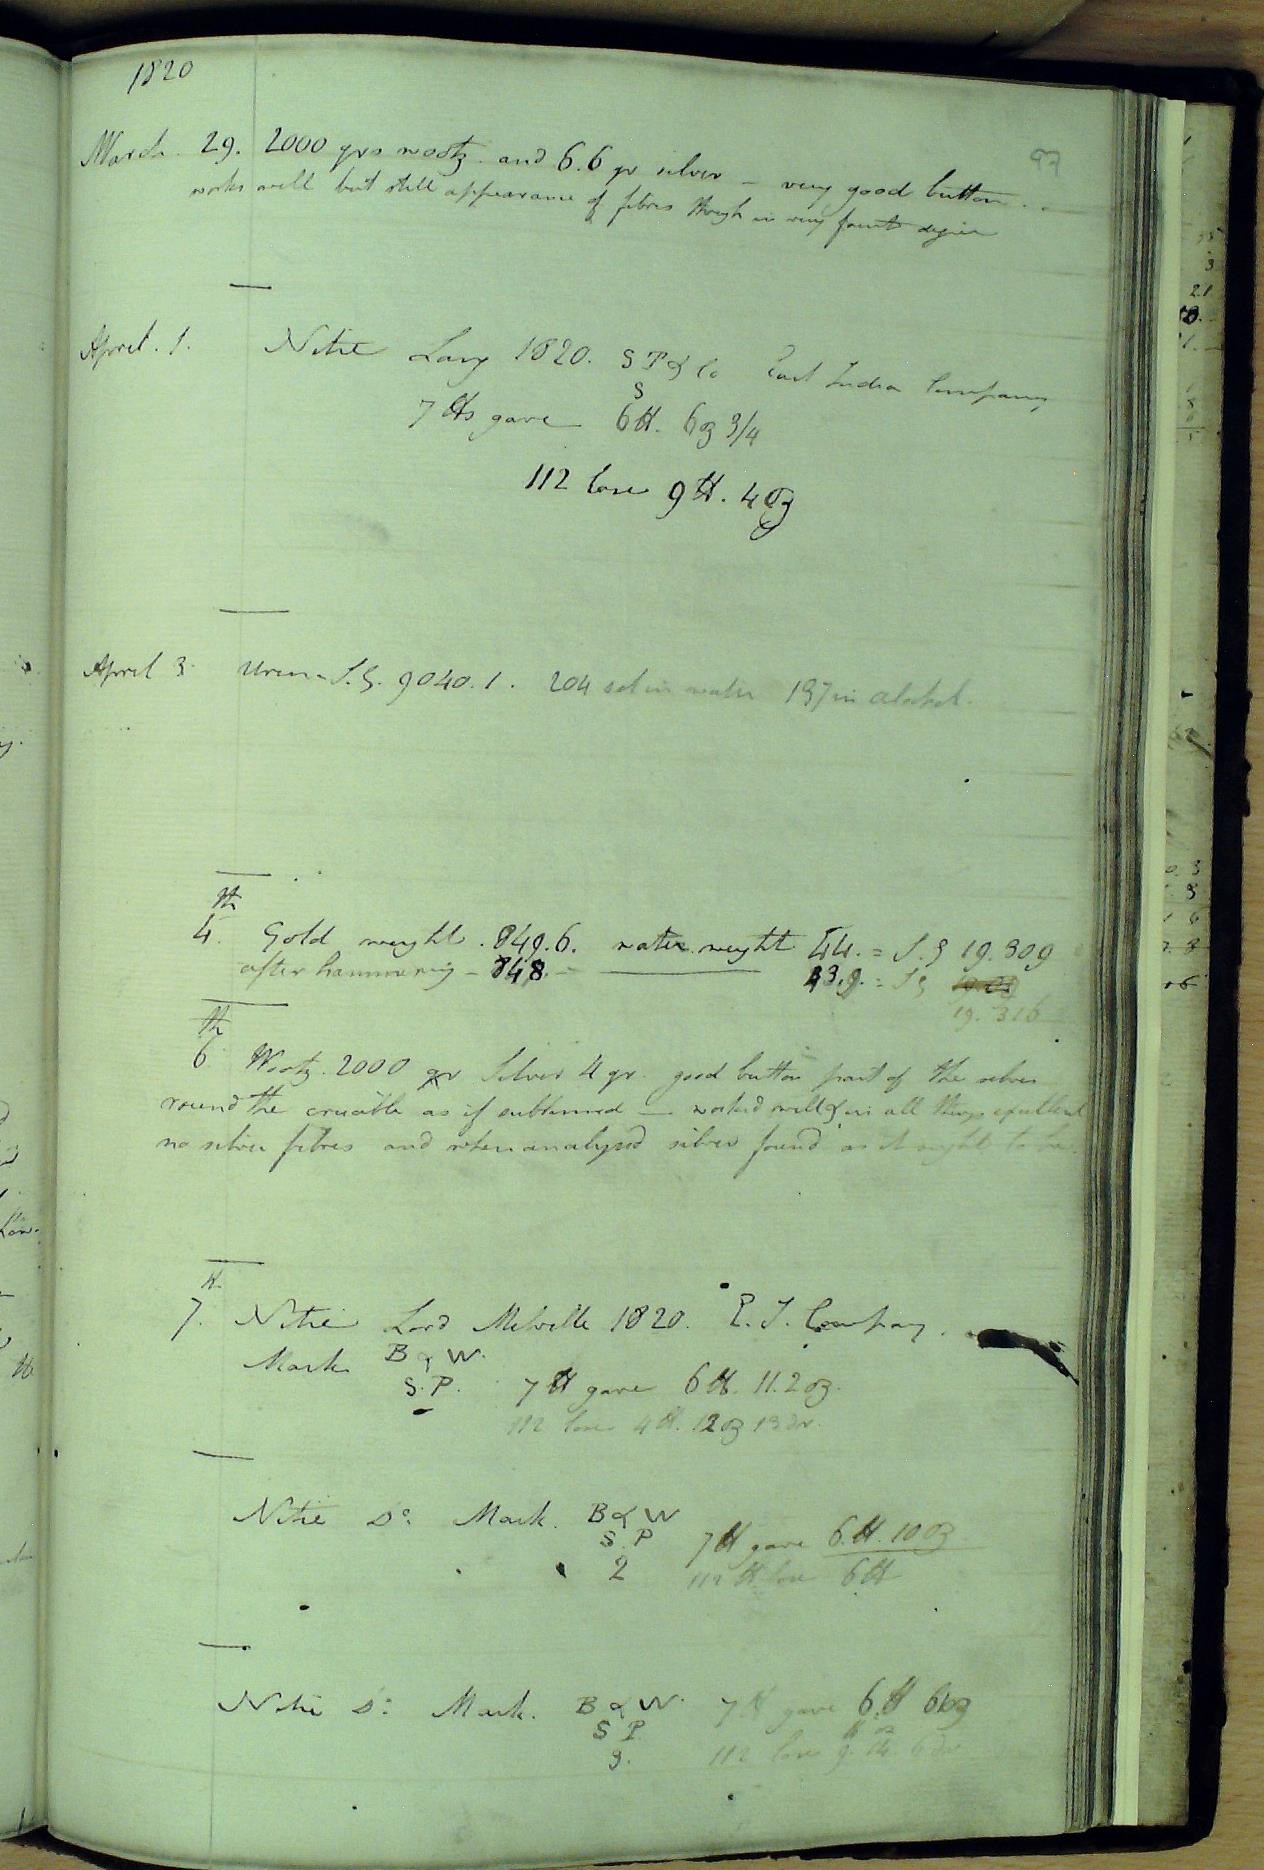 1820
97
March 29. 2000 grs wootz. and 6.6 gr silver - very good button. -
works well but still appearance of fibres though in very faint degree
April. 1. Nitre Larg 1820. S P & Co East India Company
S
7 lbs gave 6 lb. 6 oz 3/4
112 lose 9 lb. 4 oz
April 3 Urine S.G. 9040.1. 204 sol in water 137 in alcohol.
th
4. Gold weight. 849.6. water weight 44. = S.G 19.309
after hammering - 848. - 43.9. = S G
19.316
th
6 Wootz. 2000 gr Silver 4 gr. good button part of the silver
round the crucible as if sublimed - worked well & in all things excellent
no silver fibres and when analysed silver found as it ought to be.
th
7. Nitre Lord Melville 1820. E. I. Company.
Mark B & W.
S. P. 7 lb gave 6 lb. 11.2 oz.
112 lose 4 lb. 12 oz 13 dr.
Nitre Do. Mark. B & W
S. P 7 lb gave 6. lb. 10 oz
2 112 lb lose 6 lb
Nitre Do. Mark. B & W. 7 lb gave 6 lb 6 oz
S P.
3. 112 lose 9.